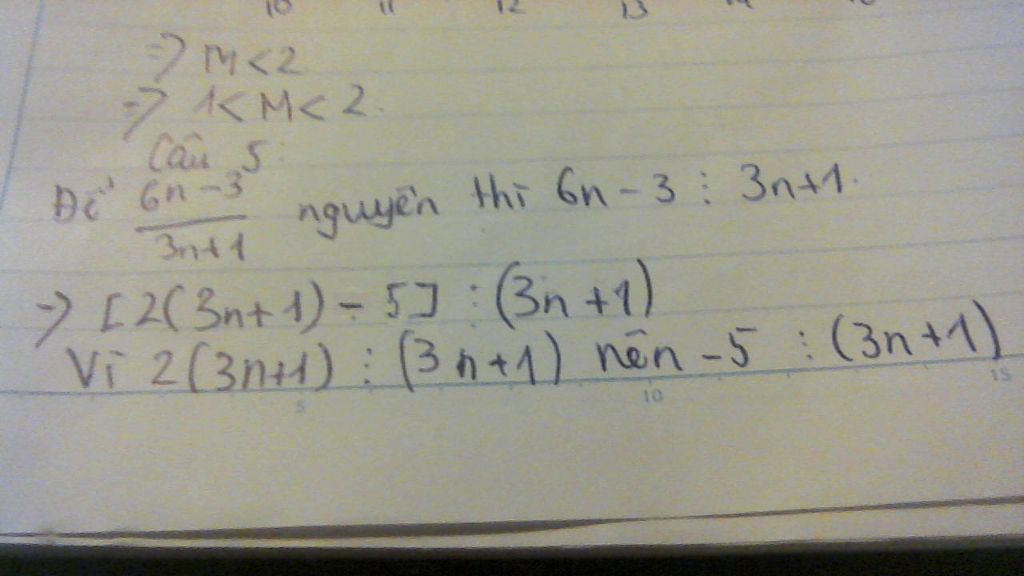 10 11 12 13 14
=> M < 2
=> 1 < M < 2.
Câu 5:
Để \frac{6n-3}{3n+1} nguyên thì 6n-3 ⋮ 3n+1.
=> [2(3n+1) - 5] ⋮ (3n+1)
Vì 2(3n+1) ⋮ (3n+1) nên -5 ⋮ (3n+1)
5 10 15